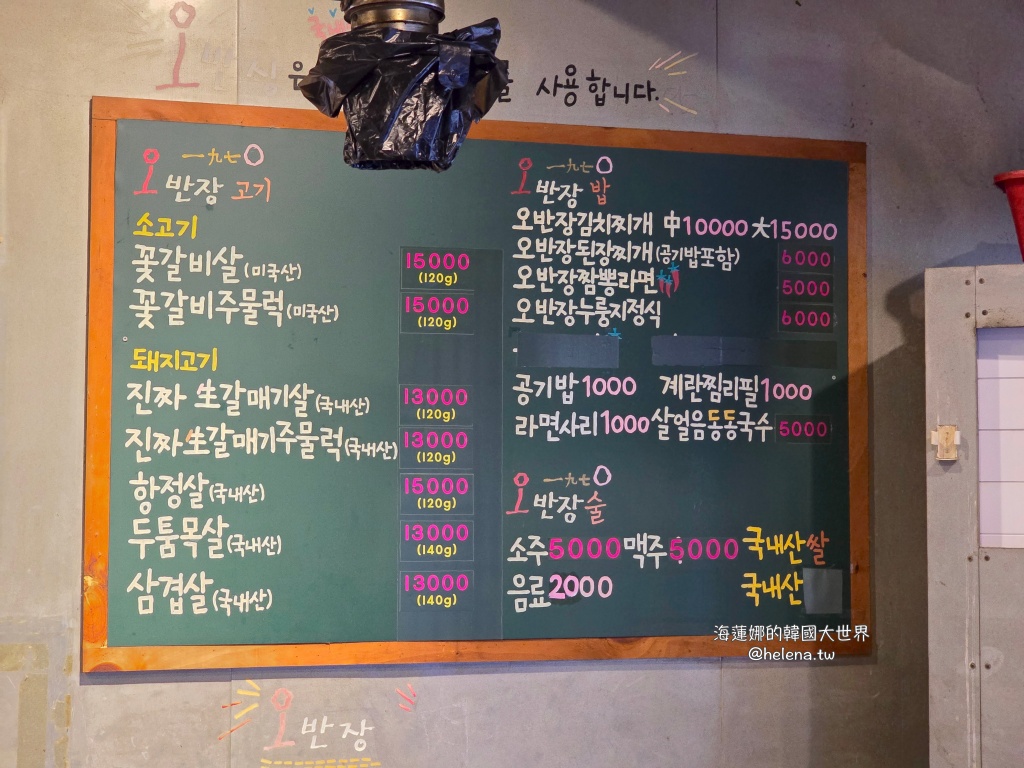 사용합니다.
一九七O
오반장 고기
소고기
꽃갈비살(미국산) 15000 (120g)
꽃갈비주물럭(미국산) 15000 (120g)
돼지고기
진짜 生갈매기살(국내산) 13000 (120g)
진짜生갈매기주물럭(국내산) 13000 (120g)
항정살(국내산) 15000 (120g)
두툼목살(국내산) 13000 (140g)
삼겹살(국내산) 13000 (140g)
一九七O
오반장 밥
오반장김치찌개 中10000 大15000
오반장된장찌개(공기밥포함) 6000
오반장짬뽕라면 5000
오반장누룽지정식 6000
공기밥 1000 계란찜리필1000
라면사리1000 살얼음동동국수 5000
一九七O
오반장술
소주5000맥주5000 국내산쌀
음료2000 국내산
海蓮娜的韓國大世界
@helena.tw
오반장